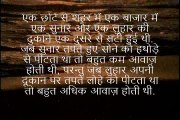 एक छोटे से शहर में एक बाजार में
एक सुनार और एक लुहार की
दुकाने एक दुसरे से सटी हुई थी.
जब सुनार तपते हुए सोने को हथोड़े
से पीटता था तो बहुत कम आवाज़
होती थी, परन्तु जब लुहार अपनी
दुकान पर तपते लोहे को पीटता था
तो बहुत अधिक आवाज़ होती थी.